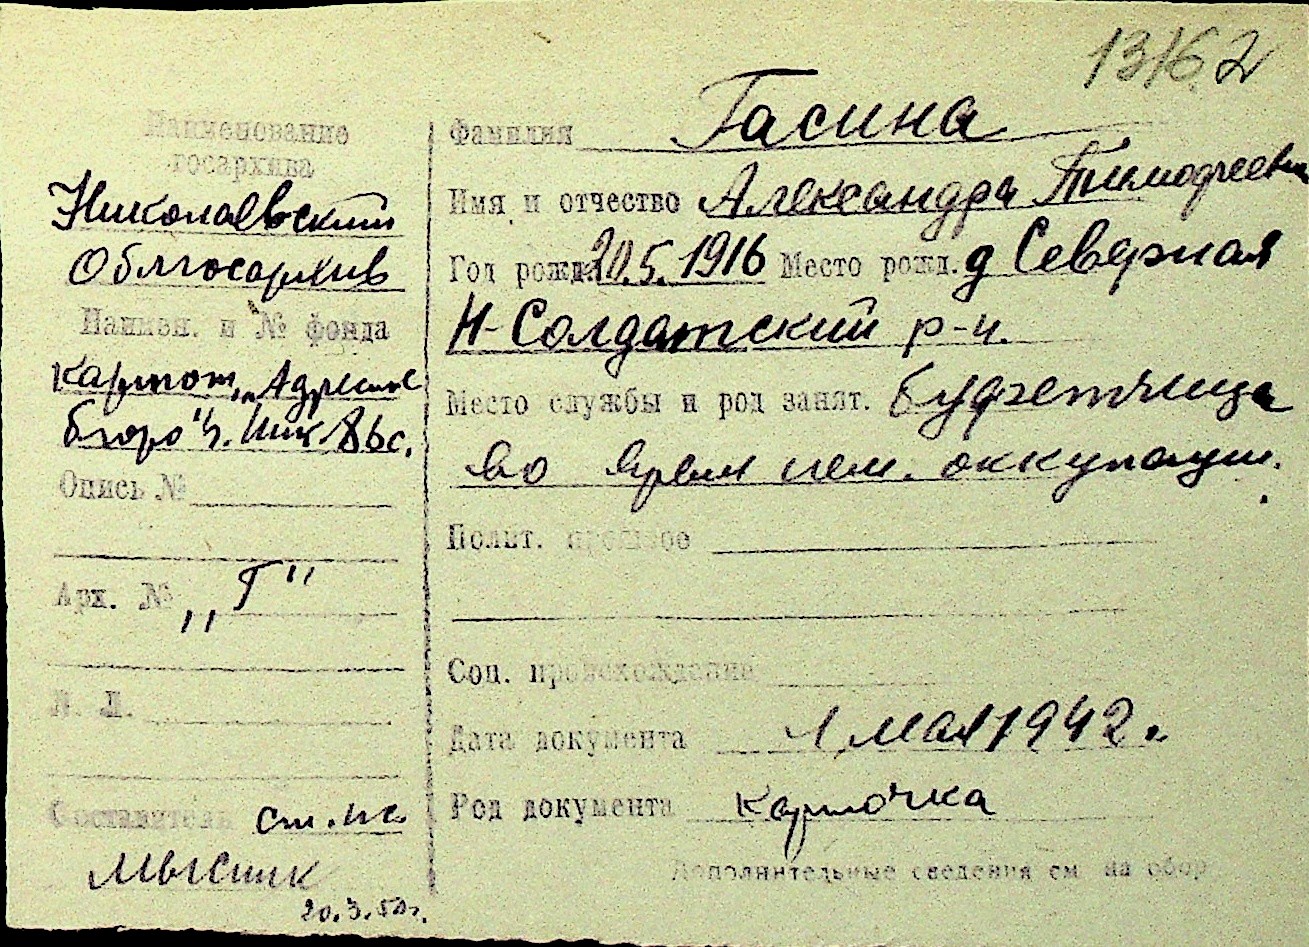 13162
Наименование
госархива
Николаевский
Облгосархив
Наимен. и № фонда
Картот. „Адресное
бюро" г. Ник.
Опись №
Арх. № „Г"
№ Л.
Составитель ст. нс
Мысик
20.3.50г.
Фамилия Гасина
Имя и отчество Александра Тимофеевна
Год рожд. 20.5.1916 Место рожд. д Северная
Н-Солдатский р-н.
Место службы и род занят. буфетчица
во время нем. оккупации.
Полит. прошлое
Соц. происхождение
Дата документа 1 мая 1942 г.
Род документа карточка
Дополнительные сведения см на обор